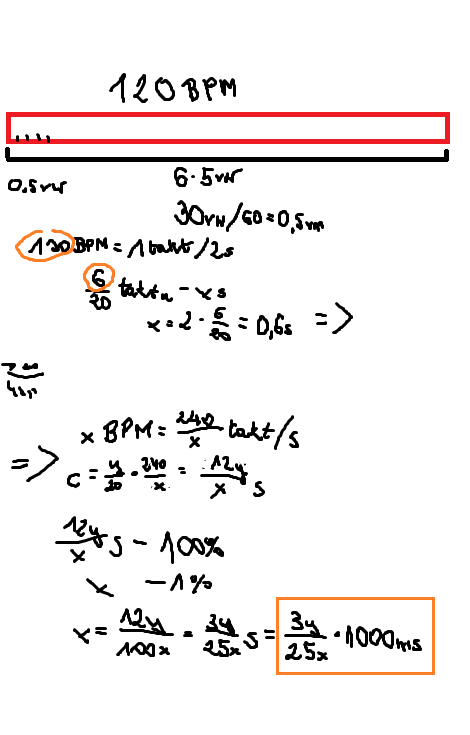 120 BPM
....
0.5 m
6·5 m
30 m/60=0,5 m
120 BPM=1 takt/2s
6/20 taktu - x s
x=2·6/20=0,6s =>
x BPM=240/x takt/s
=> c=y/20·240/x=12y/x s
12y/x s - 100%
x - 1%
x=12y/100x=3y/25x s=3y/25x·1000ms